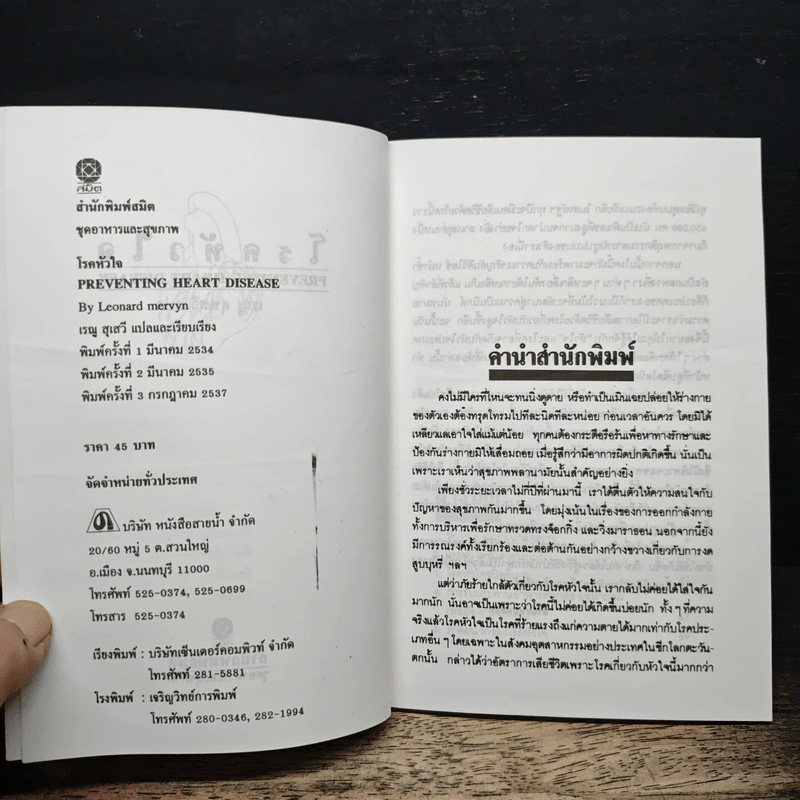 สมิต
สำนักพิมพ์สมิต
ชุดอาหารและสุขภาพ
โรคหัวใจ
PREVENTING HEART DISEASE
By Leonard mervyn
เรณู สุเสวี แปลและเรียบเรียง
พิมพ์ครั้งที่ 1 มีนาคม 2534
พิมพ์ครั้งที่ 2 มีนาคม 2535
พิมพ์ครั้งที่ 3 กรกฎาคม 2537
ราคา 45 บาท
จัดจำหน่ายทั่วประเทศ
บริษัท หนังสือสายน้ำ จำกัด
20/60 หมู่ 5 ต.สวนใหญ่
อ.เมือง จ.นนทบุรี 11000
โทรศัพท์ 525-0374, 525-0699
โทรสาร 525-0374
เรียงพิมพ์ : บริษัทเซ็นเตอร์คอมพิวท์ จำกัด
โทรศัพท์ 281-5881
โรงพิมพ์ : เจริญวิทย์การพิมพ์
โทรศัพท์ 280-0346, 282-1994
คำนำสำนักพิมพ์
คงไม่มีใครที่ไหนจะทนนิ่งดูดาย หรือทำเป็นเมินเฉยปล่อยให้ร่างกาย
ของตัวเองต้องทรุดโทรมไปทีละนิดทีละหน่อย ก่อนเวลาอันควร โดยมิได้
เหลียวแลเอาใจใส่แม้แต่น้อย ทุกคนต้องกระตือรือร้นเพื่อหาทางรักษาและ
ป้องกันร่างกายมิให้เสื่อมถอย เมื่อรู้สึกว่ามีอาการผิดปกติเกิดขึ้น นั่นเป็น
เพราะเราเห็นว่าสุขภาพพลานามัยนั้นสำคัญอย่างยิ่ง
เพียงชั่วระยะเวลาไม่กี่ปีที่ผ่านมานี้ เราได้ตื่นตัวให้ความสนใจกับ
ปัญหาของสุขภาพกันมากขึ้น โดยมุ่งเน้นในเรื่องของการออกกำลังกาย
ทั้งการบริหารเพื่อรักษาทรวดทรงจ็อกกิ้ง และวิ่งมาราธอน นอกจากนี้ยัง
มีการรณรงค์ทั้งเรียกร้องและต่อต้านกันอย่างกว้างขวางเกี่ยวกับการงด
สูบบุหรี่ ฯลฯ
แต่ว่าภัยร้ายใกล้ตัวเกี่ยวกับโรคหัวใจนั้น เรากลับไม่ค่อยได้ใส่ใจกัน
มากนัก นั่นอาจเป็นเพราะว่าโรคนี้ไม่ค่อยได้เกิดขึ้นบ่อยนัก ทั้ง ๆ ที่ความ
จริงแล้วโรคหัวใจเป็นโรคที่ร้ายแรงถึงแก่ความตายได้มากเท่ากับโรคประ-
เภทอื่น ๆ โดยเฉพาะในสังคมอุตสาหกรรมอย่างประเทศในซีกโลกตะวัน-
ตกนั้น กล่าวได้ว่าอัตราการเสียชีวิตเพราะโรคเกี่ยวกับหัวใจนี้มากกว่า